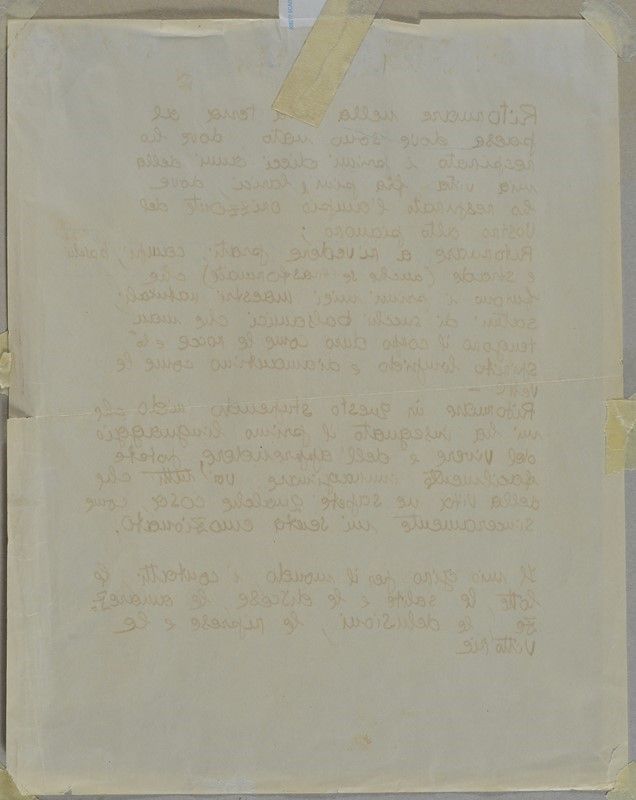 Ritornare nella mia terra al
paese dove sono nato dove ho
respirato i primi dieci anni della
mia vita fra pini, larici, dove
ho respirato l'ampio orizzonte del
vostro alto pianoro ;
Ritornare a rivedere prati, campi,
e strade (anche se trasformate) che
furono i primi miei maestri naturali,
di succhi balsamici che man
tengono il corpo duro come le rocce e lo
spirito limpido e diamantino come le

Ritornare in questo stupendo nido che
mi ha insegnato il primo linguaggio
del vivere e dell'apprendere, potete
facilmente immaginare voi tutti che
della vita ne sapete qualche cosa, come
sinceramente mi senta emozionato.
Il mio giro per il mondo i contatti, le
lotte, le salite e le discese, le amarez=
ze, le delusioni, le riprese e le
vittorie